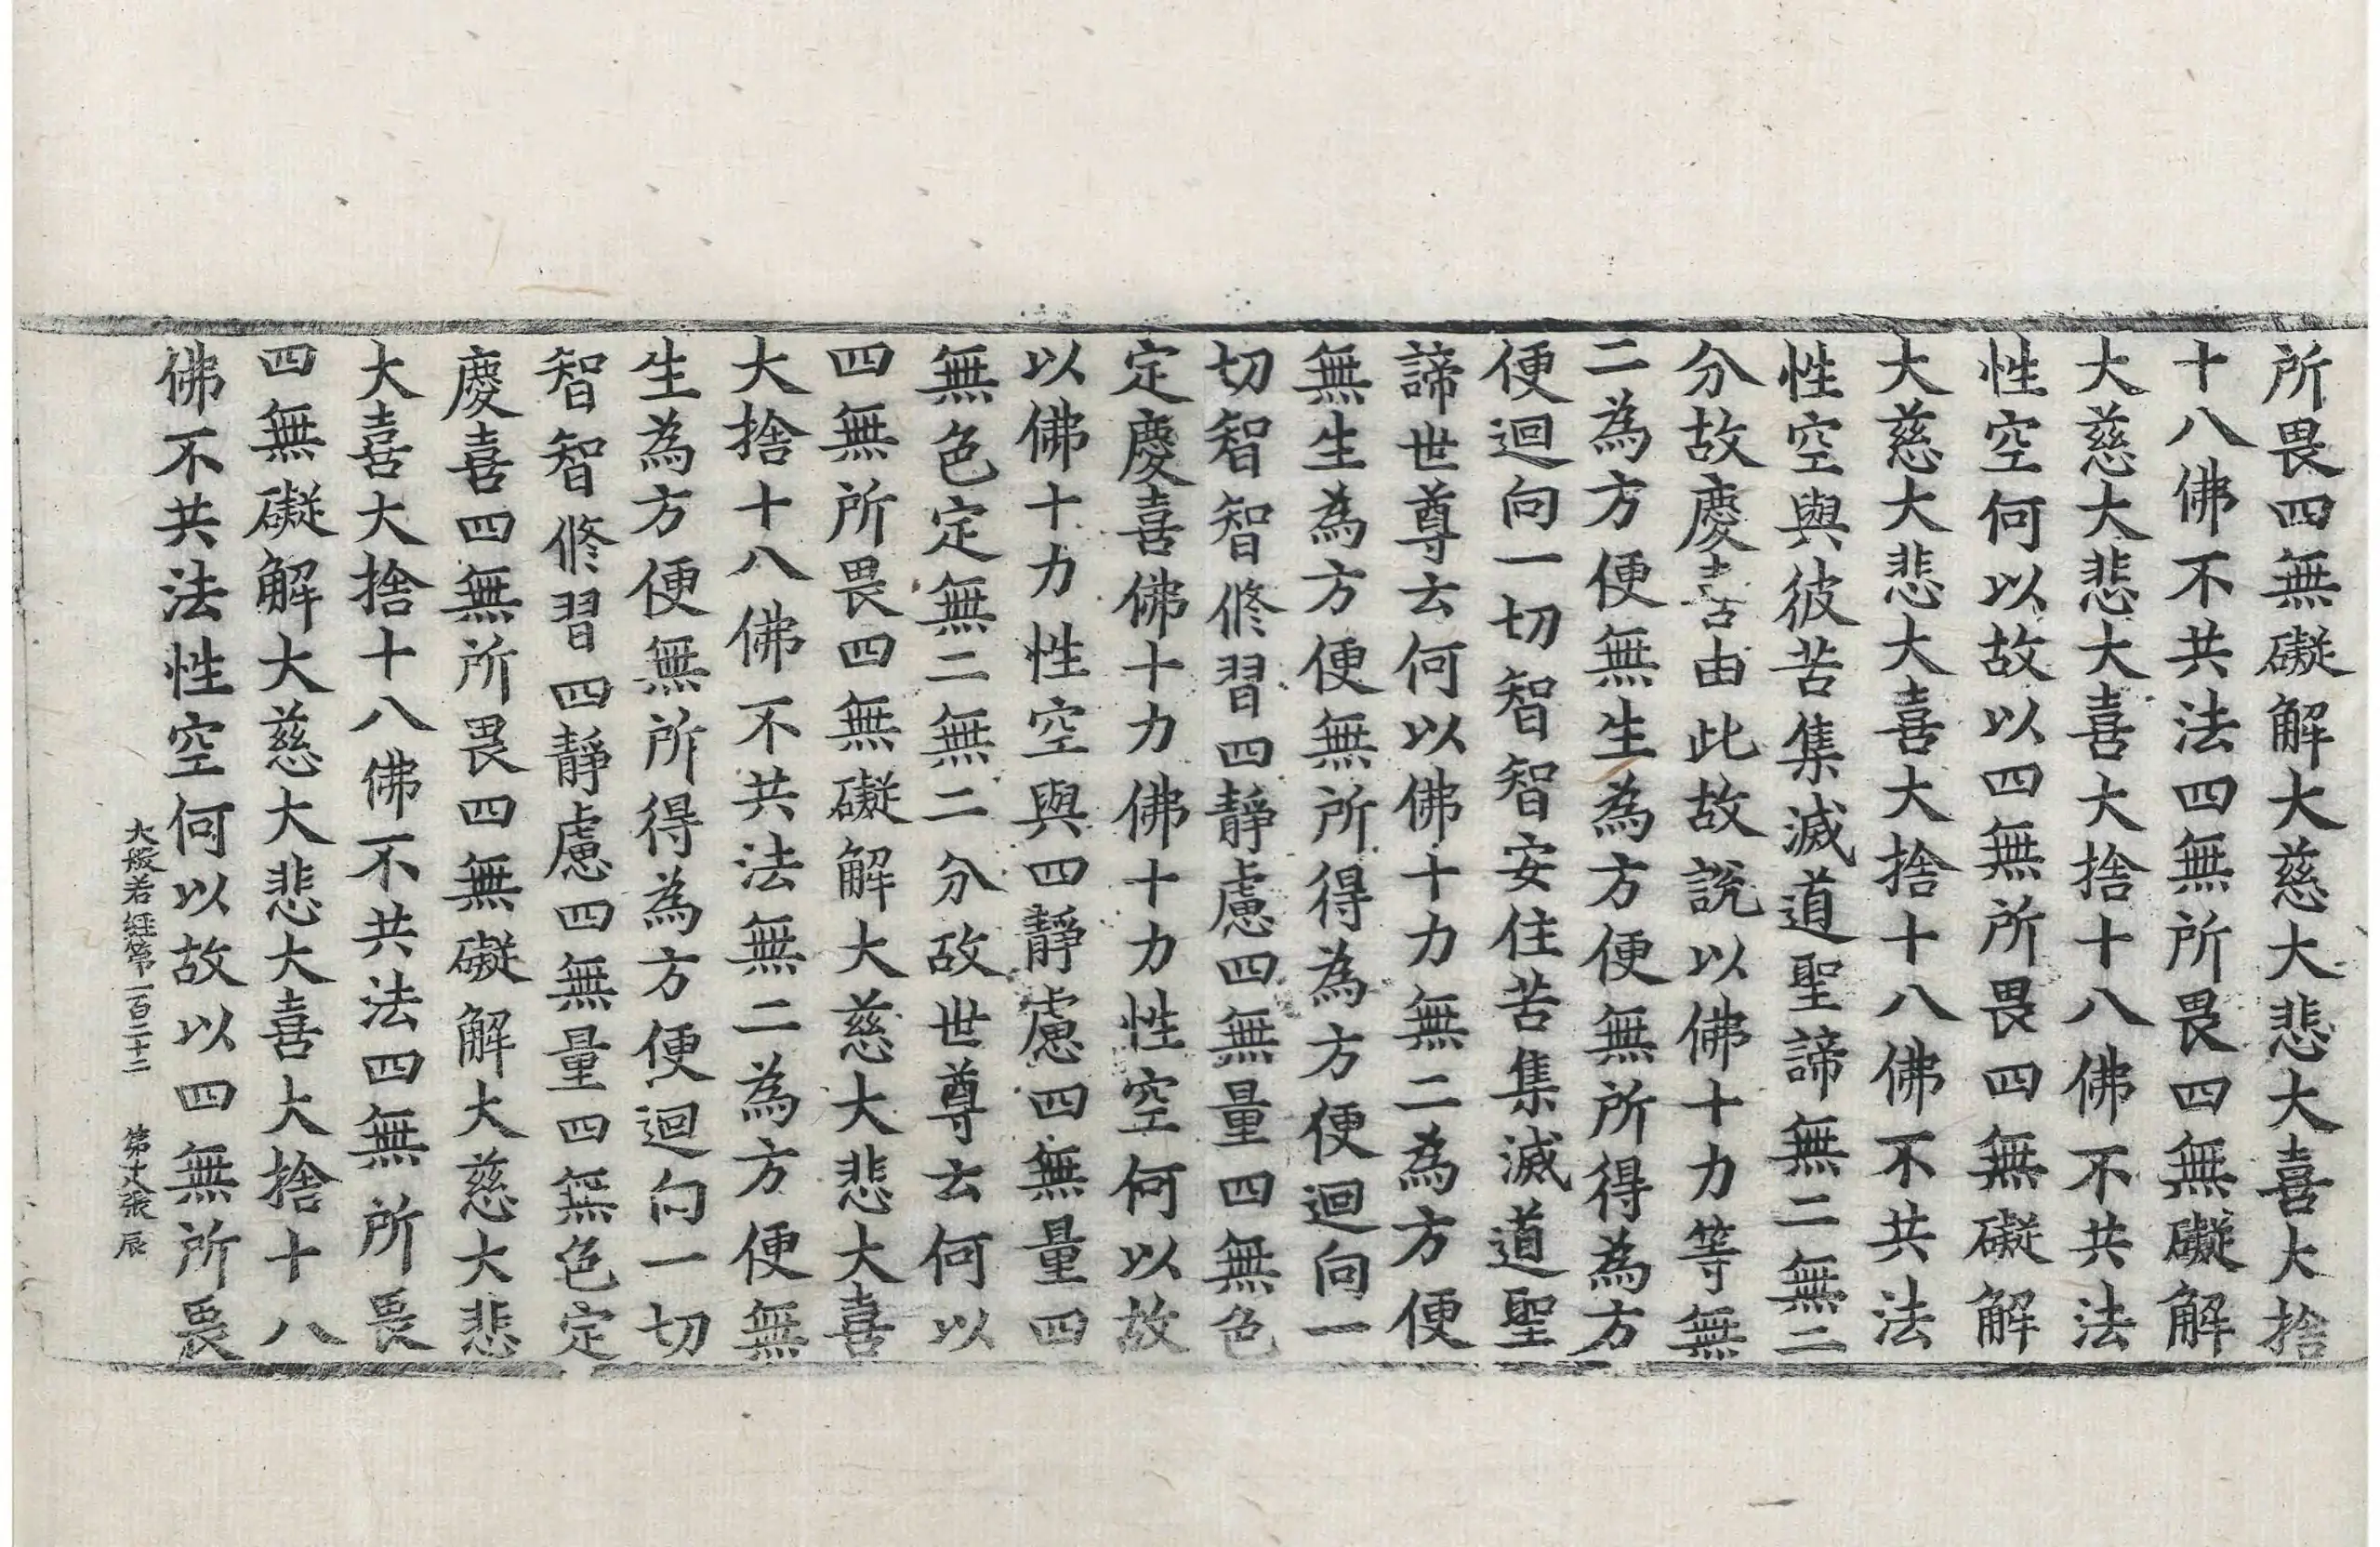 所畏四無礙解大慈大悲大喜大捨
十八佛不共法四無所畏四無礙解
大慈大悲大喜大捨十八佛不共法
性空何以故以四無所畏四無礙解
大慈大悲大喜大捨十八佛不共法
性空與彼苦集滅道聖諦無二無二
分故慶喜由此故說以佛十力等無
二為方便無生為方便無所得為方
便迴向一切智智安住苦集滅道聖
諦世尊云何以佛十力無二為方便
無生為方便無所得為方便迴向一
切智智修習四靜慮四無量四無色
定慶喜佛十力佛十力性空何以故
以佛十力性空與四靜慮四無量四
無色定無二無二分故世尊云何以
四無所畏四無礙解大慈大悲大喜
大捨十八佛不共法無二為方便無
生為方便無所得為方便迴向一切
智智修習四靜慮四無量四無色定
慶喜四無所畏四無礙解大慈大悲
大喜大捨十八佛不共法四無所畏
四無礙解大慈大悲大喜大捨十八
佛不共法性空何以故以四無所畏
大般若經第一百二十二 第 張 辰